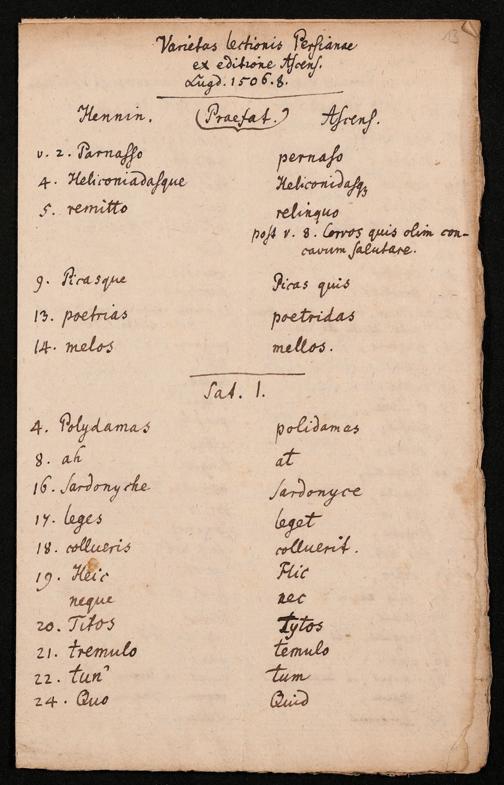 13
Varietas lectionis Persianae
ex editione Ascens.
Lugd. 1506. 8.
Hennin. (Praefat.) Ascens.
v. 2. Parnasso pernaso
4. Heliconiadasque Heliconidasqꝫ
5. remitto relinquo
post v. 8. Corvos quis olim con-
cavum salutare.
9. Picasque Picas quis
13. poetrias poetridas
14. melos mellos.
Sat. 1.
4. Polydamas polidamas
8. ah at
16. Sardonyche Sardonyce
17. leges leget
18. collueris colluerit.
19. Heic Hic
neque nec
20. Titos Tytos
21. tremulo temulo
22. tun' tum
24. Quo Quid